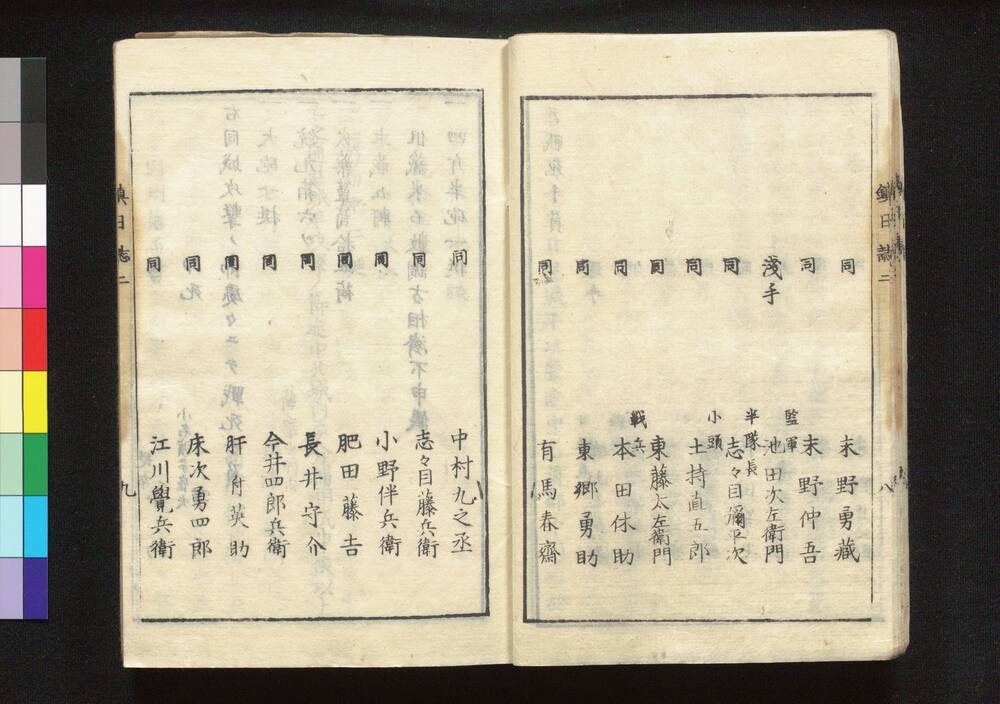 鎮日誌二
八
同 末野勇藏
同 末野仲吾
淺手 監軍 池田次左衛門
同 半隊長 志々目彌平次
同 小頭 土持直五郎
同 東藤太左衛門
同 戦兵 本田休助
同 東郷勇助
同 有馬春齋
同 中村九之丞
同 志々目藤兵衛
同 小野伴兵衛
同 肥田藤吉
同 長井守介
同 今井四郎兵衛
同 肝付英助
同 床次勇四郎
同 江川覺兵衛
鎮日志二
九